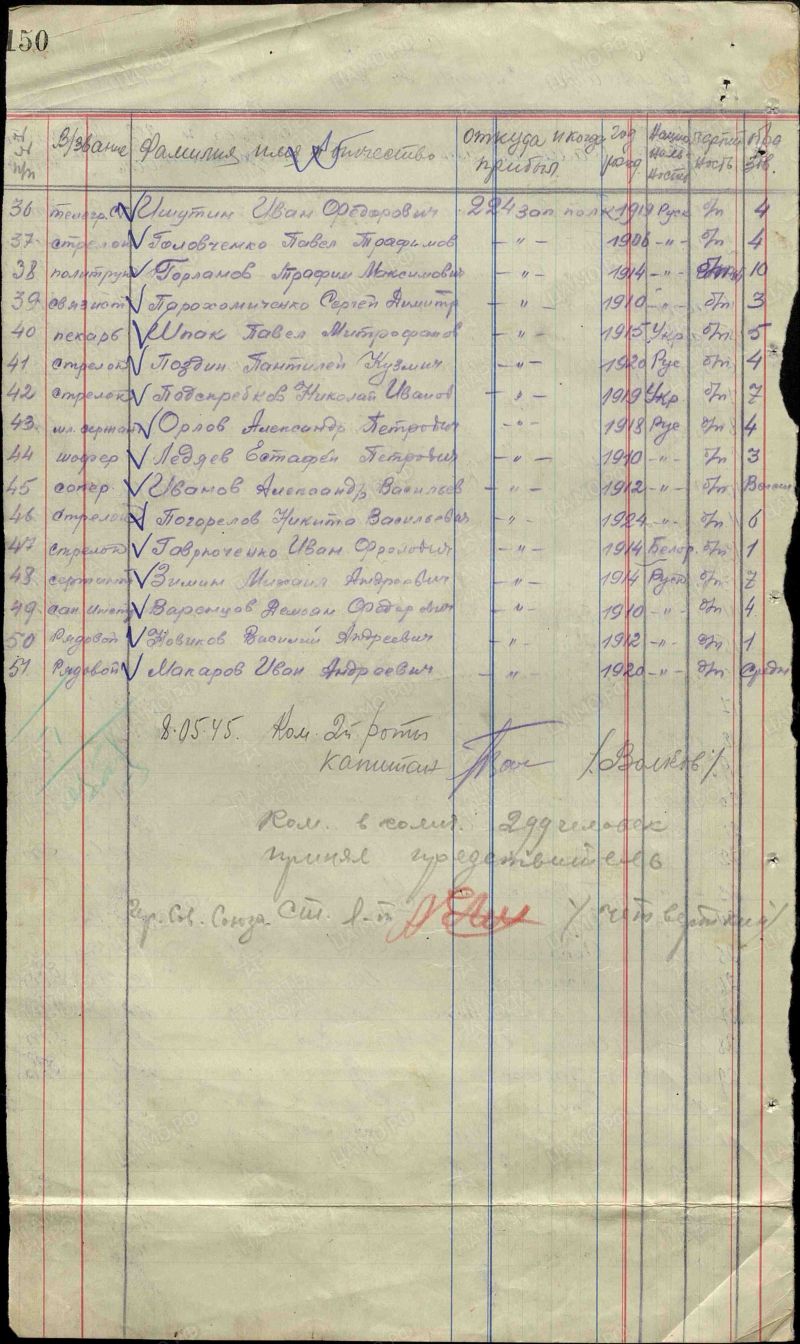 150
№ № п/п В/звание Фамилия имя Отчество откуда и когда прибыл Год рожд Нацио наль ность Партий ность Обр зов.
36 телегр. Ишутин Иван Федорович 224 зап полк 1919 Руск б/п 4
37 стрелок Головченко Павел Трафимов -"- 1906 -"- б/п 4
38 политрук Горламов Трафим Максимович -"- 1914 -"- 10
39 связист Парохомиченко Сергей Димитр -"- 1910 -"- б/п 3
40 пекарь Шпак Павел Митрофанов -"- 1915 Укр б/п 5
41 стрелок Поздин Пантилей Кузмич -"- 1920 Рус б/п 4
42 стрелок Подскребков Николай Иванов -"- 1919 Укр б/п 7
43 мл. сержан Орлов Александр Петрович -"- 1918 Рус б/п 4
44 шофер Ледяев Естафей Петрович -"- 1910 -"- б/п 3
45 сопер Иванов Александр Васильев -"- 1912 -"- б/п
46 стрелок Погорелов Никита Васильевич -"- 1924 -"- б/п 6
47 стрелок Гаврюченко Иван Фролович -"- 1914 Белор. б/п 1
48 сержант Зимин Михаил Андреевич -"- 1914 Руск б/п 7
49 сан. инстр Варенцов Демьян Федорович -"- 1910 -"- б/п 4
50 Рядовой Новиков Василий Андреевич -"- 1912 -"- б/п 1
51 Рядовой Макаров Иван Андреевич -"- 1920 -"- б/п Средн
8.05.45. Ком. 2й роты
капитан /Волков/
Ком. в колич. 299 человек
принял представитель
Гер. Сов. Союза Ст. л-т /Четверткий/